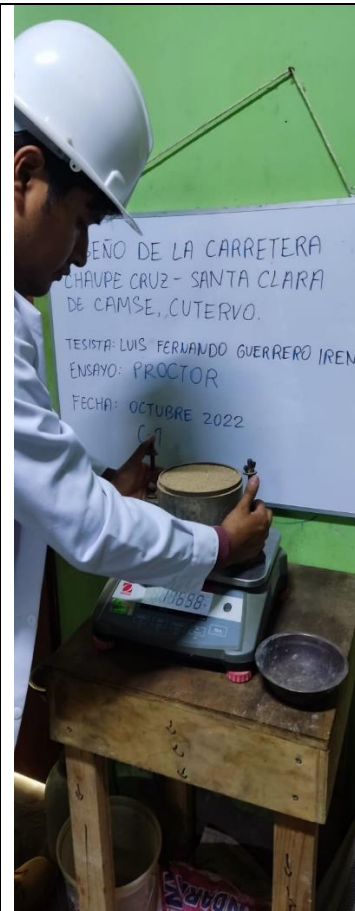 SEÑO DE LA CARRETERA
CHAUPE CRUZ - SANTA CLARA
DE CAMSE, CUTERVO.
TESISTA: LUIS FERNANDO GUERRERO IREN
ENSAYO: PROCTOR
FECHA: OCTUBRE 2022
C-7